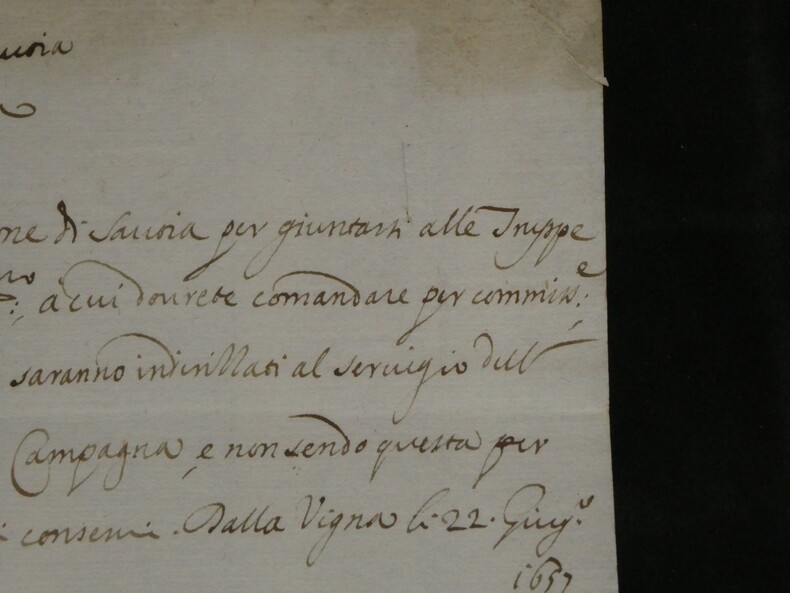 ne di Sauoia per giuntarsi alle Truppe
a cui dourete comandare per commiss.e
saranno indirillati al seruigio dell
Campagna, e non sendo questa per
i conserui. Dalla Vigna li 22. Giug.o
1657